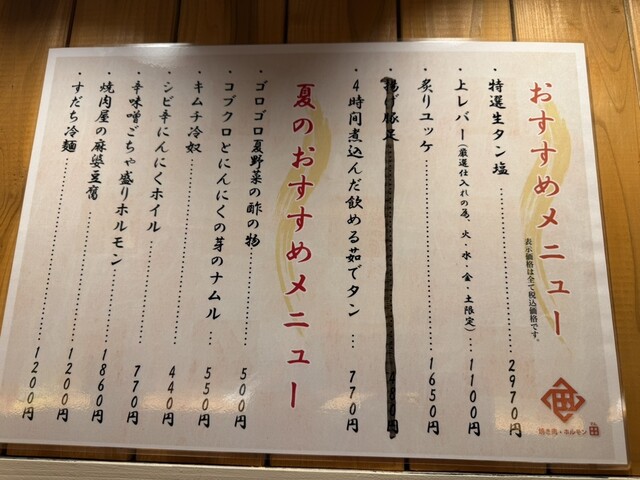 おすすめメニュー
表示価格は全て税込価格です。
・特選生タン塩…………………2970円
・上レバー(厳選仕入れの為、火・水・金・土限定)…1100円
・炙りユッケ…………………1650円
・揚げ豚足
・4時間煮込んだ飲める茹でタン…770円
夏のおすすめメニュー
・ゴロゴロ夏野菜の酢の物…………500円
・コブクロとにんにくの芽のナムル…550円
・キムチ冷奴…………………550円
・シビ辛にんにくホイル…………440円
・辛味噌ごちゃ盛りホルモン………770円
・焼肉屋の麻婆豆腐…………1860円
・すだち冷麺…………………1200円
1200円
焼き肉・ホルモン